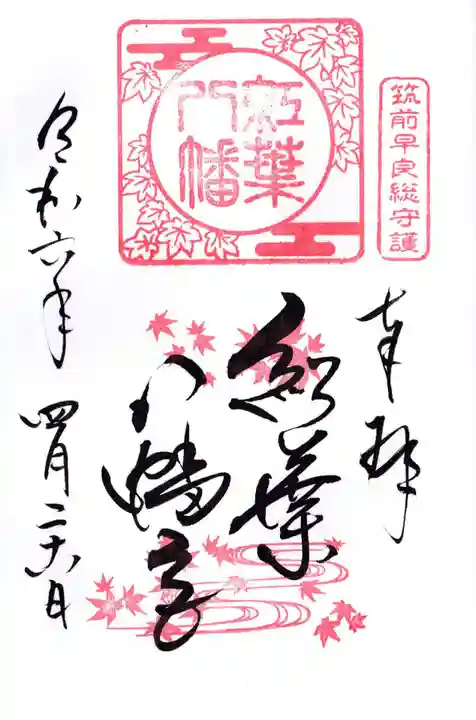 筑前早良総守護
奉拝
紅葉八幡
紅葉
八幡宮
令和六年
四月二十六日